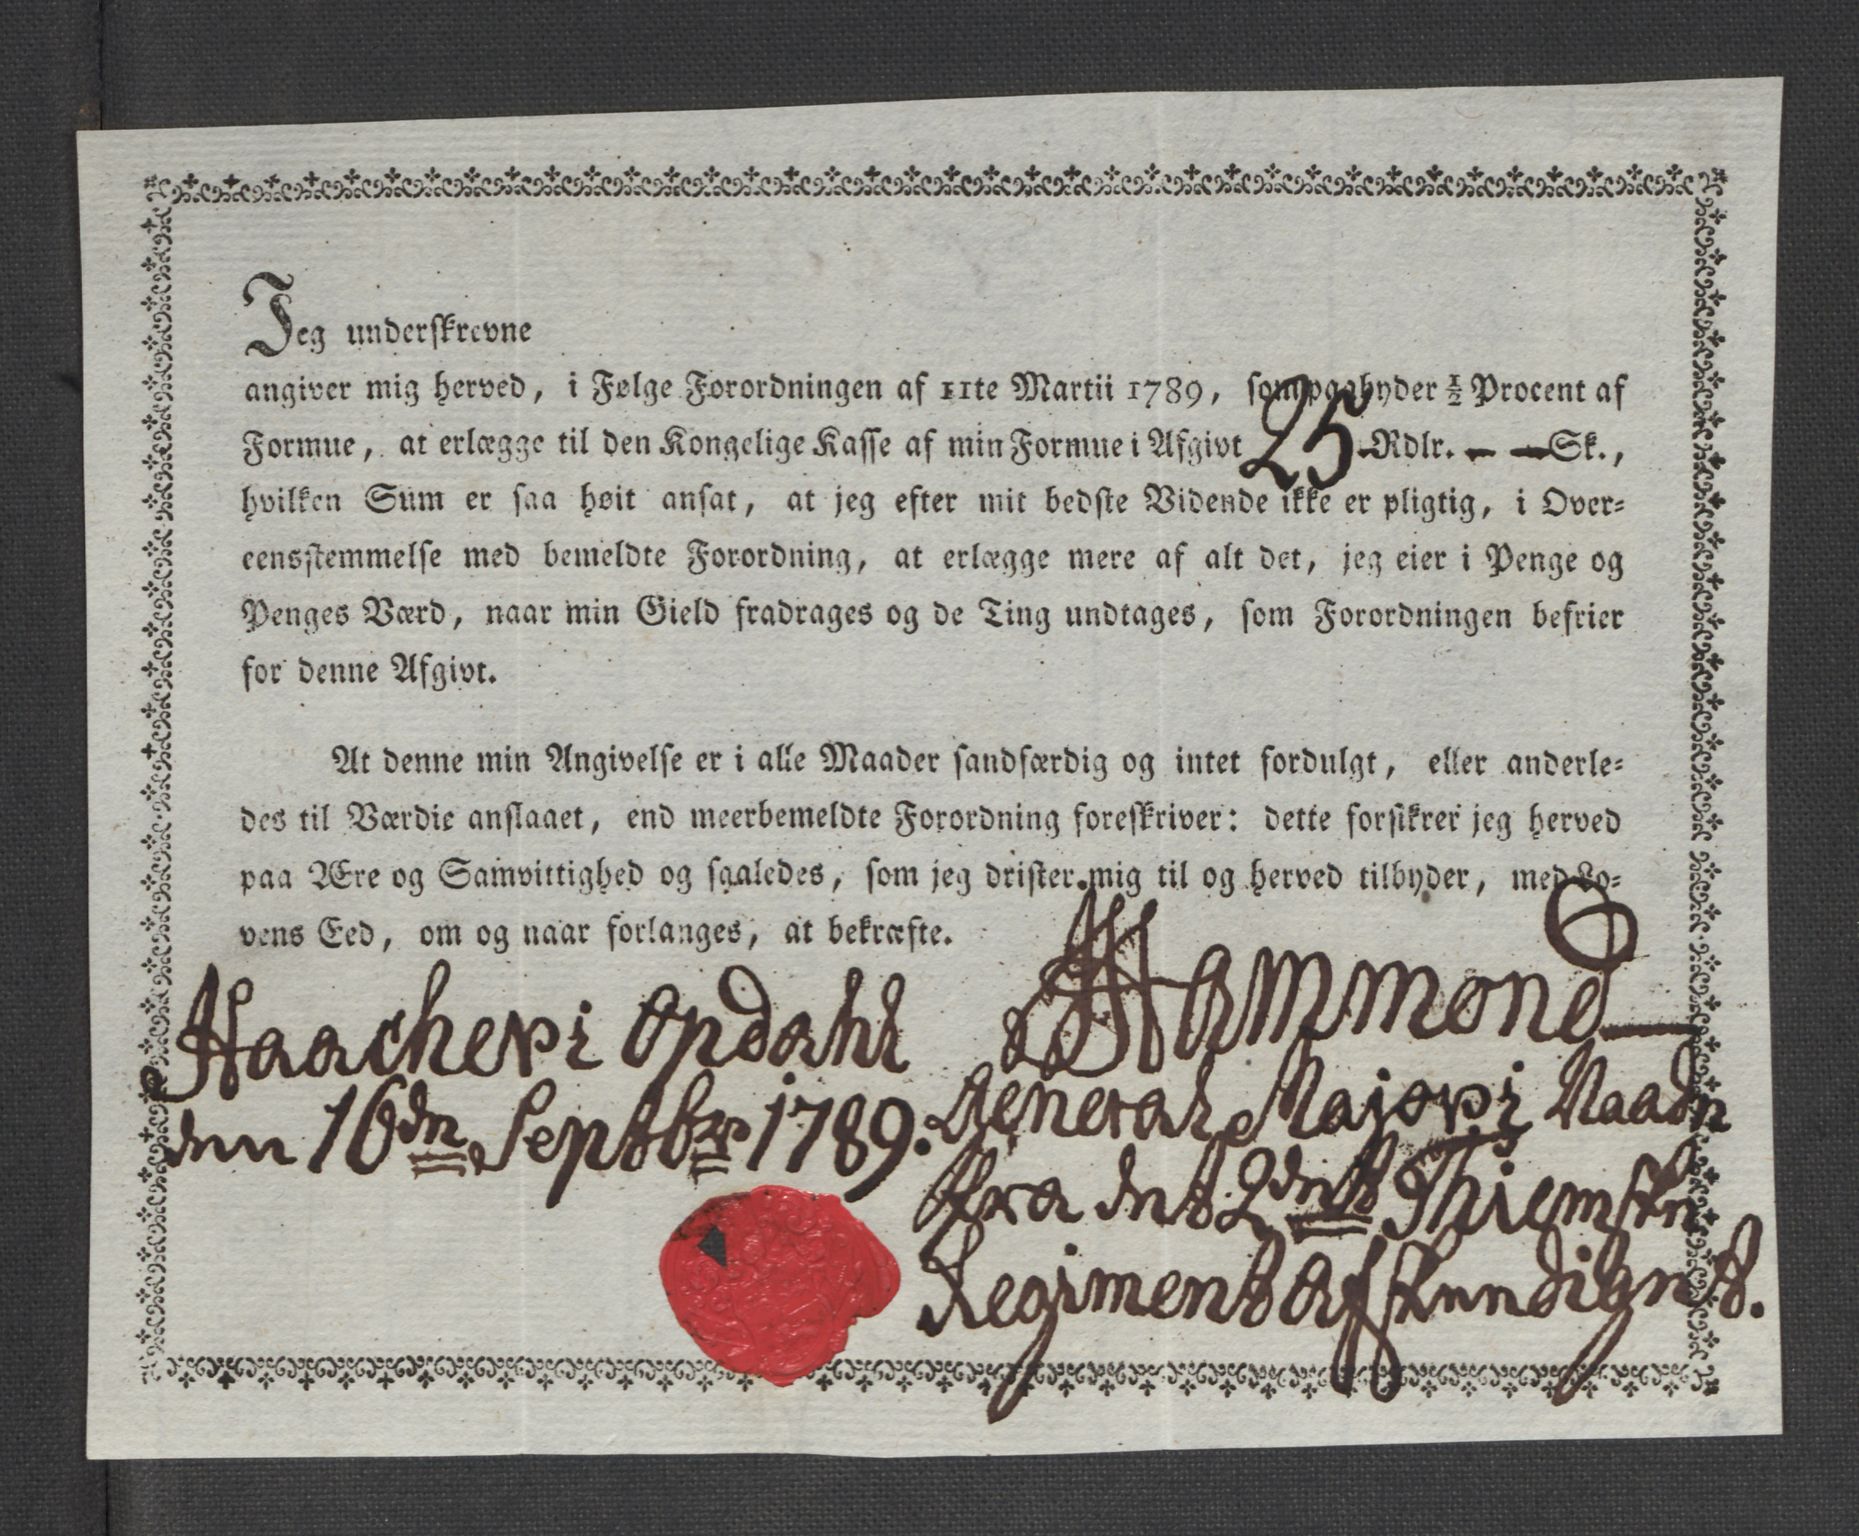 Jeg underskrevne
angiver mig herved, i Følge Forordningen af 11te Martii 1789, som paabyder ½ Procent af
Formue, at erlægge til den Kongelige Kasse af min Formue i Afgivt 25 Rdlr. — — Sk.,
hvilken Sum er saa høit ansat, at jeg efter mit bedste Vidende ikke er pligtig, i Over-
eensstemmelse med bemeldte Forordning, at erlægge mere af alt det, jeg eier i Penge og
Penges Værd, naar min Gield fradrages og de Ting undtages, som Forordningen befrier
for denne Afgivt.
At denne min Angivelse er i alle Maader sandfærdig og intet fordulgt, eller anderle-
des til Værdie anslaaet, end meerbemeldte Forordning foreskriver: dette forsikrer jeg herved
paa Ære og Samvittighed og saaledes, som jeg drister mig til og herved tilbyder, med Lo-
vens Eed, om og naar forlanges, at bekræfte.
Haacher i Opdahl
den 16de Septbr 1789.
Hammond
General Major i
fra det 2det
Regiment